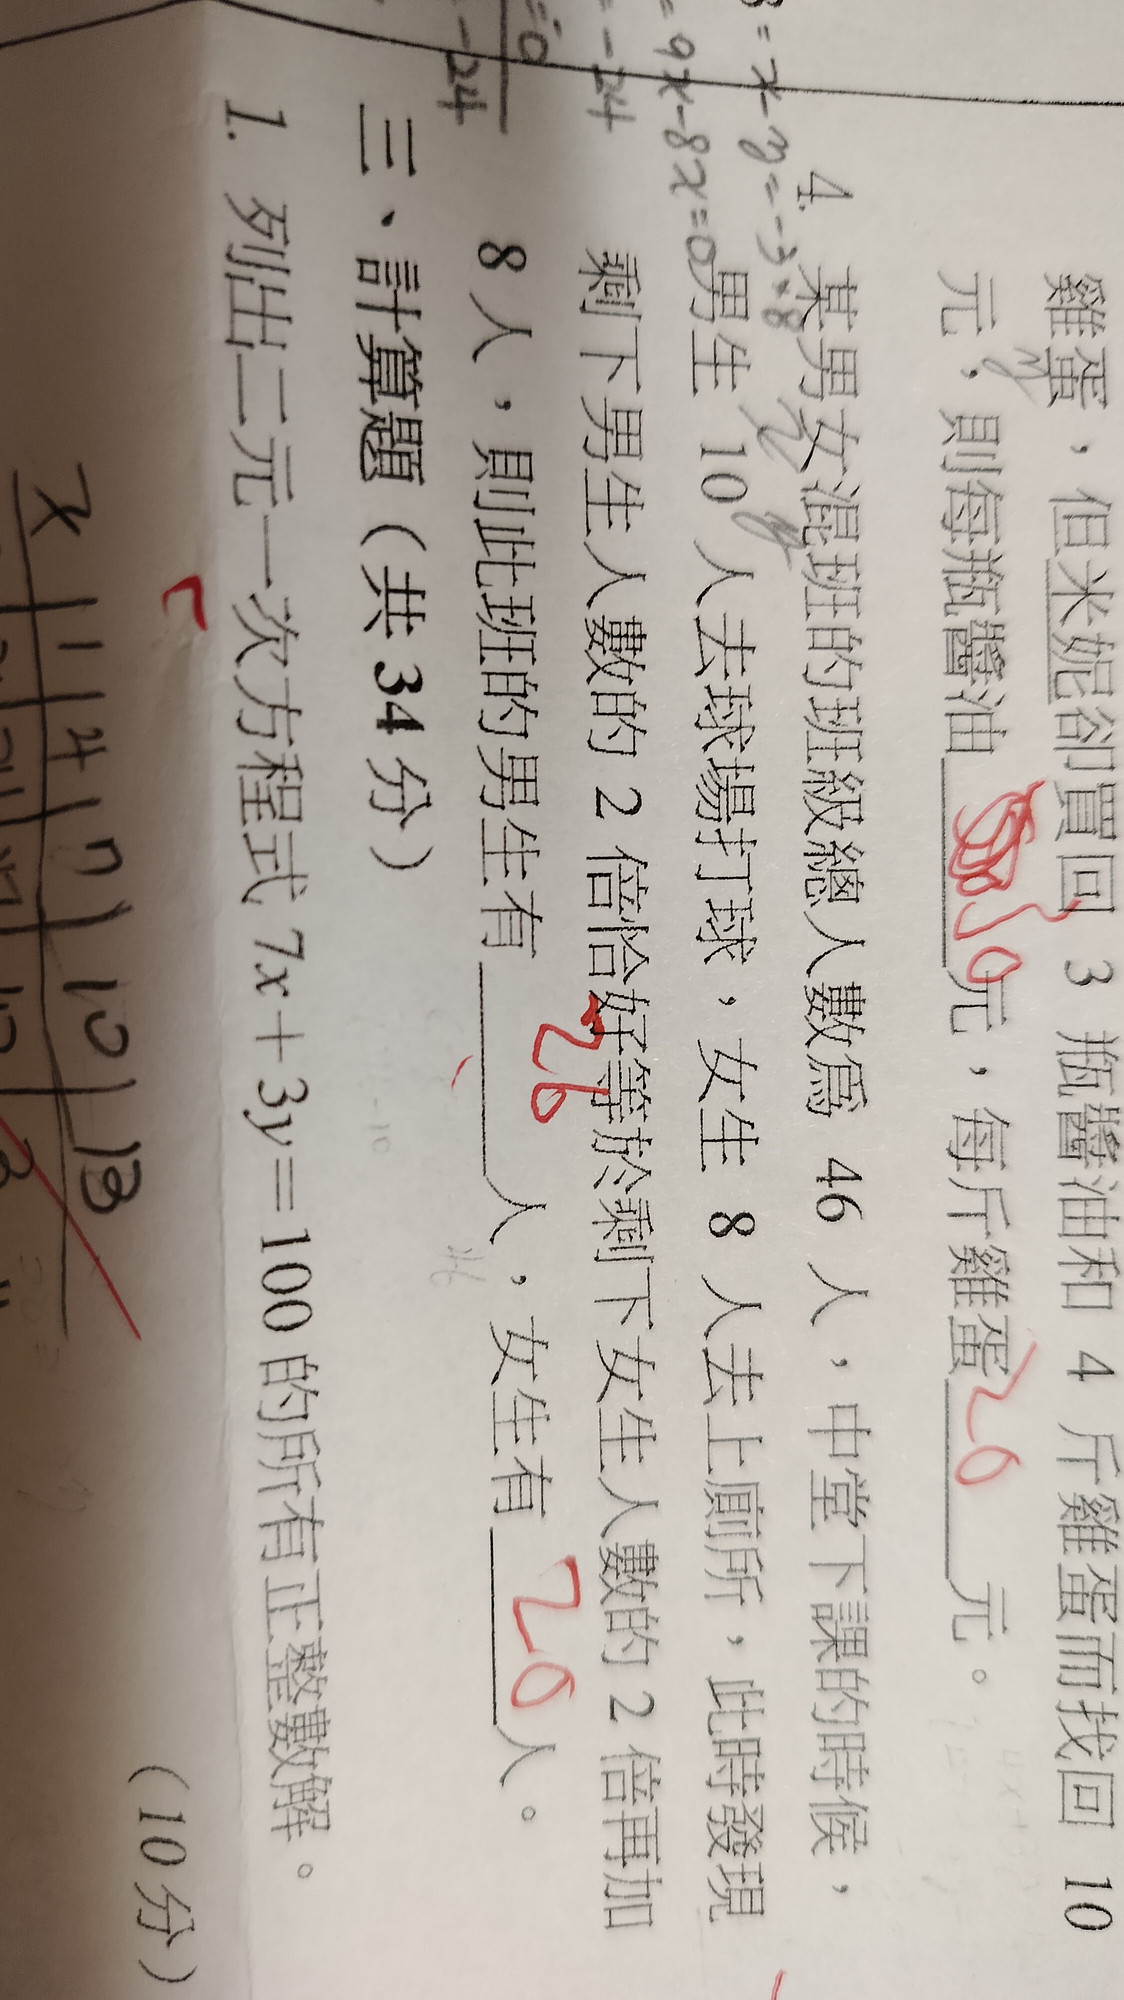 雞蛋，但米妮卻買回 3 瓶醬油和 4 斤雞蛋而找回 10
元，則每瓶醬油 50 元，每斤雞蛋 20 元。
4. 某男女混班的班級總人數為 46 人，中堂下課的時候，
男生 10 人去球場打球，女生 8 人去上廁所，此時發現
剩下男生人數的 2 倍恰好等於剩下女生人數的 2 倍再加
8 人，則此班的男生有 26 人，女生有 20 人。
8=x-y=-3+8
=9x-8x=0
=-24
-24
三、計算題（共 34 分）
1. 列出二元一次方程式 7x+3y=100 的所有正整數解。
（10 分）
x 1 4 7 10 13